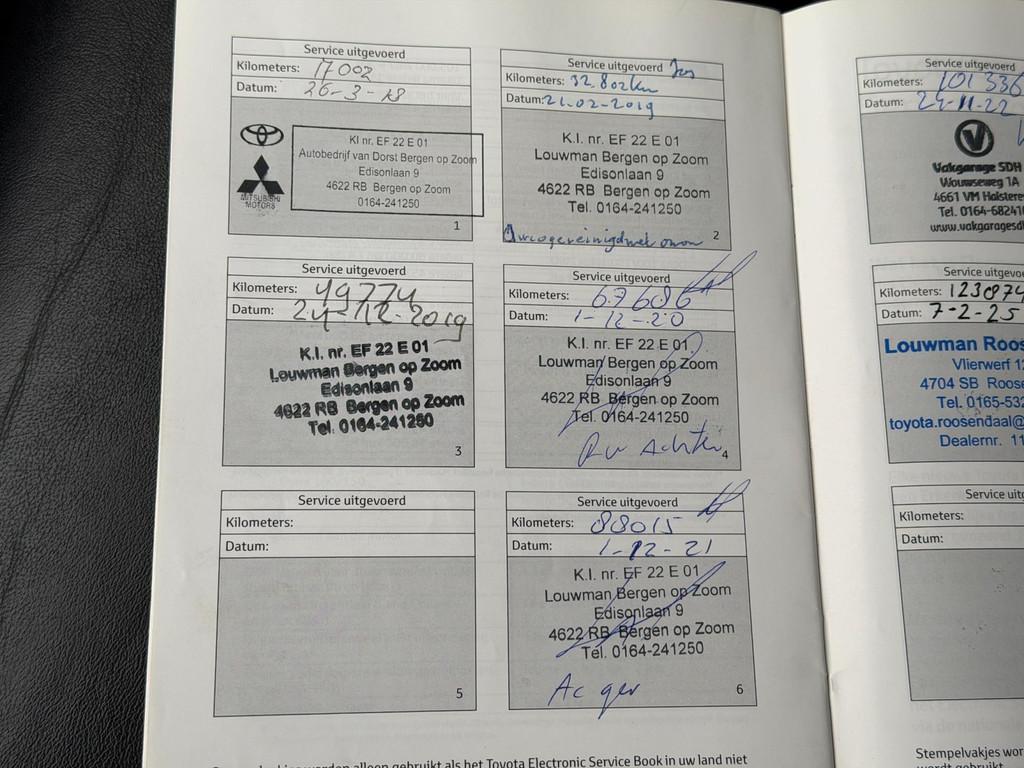 Service uitgevoerd
Kilometers: 17002
Datum: 26-3-18
MITSUBISHI
MOTORS
KI nr. EF 22 E 01
Autobedrijf van Dorst Bergen op Zoom
Edisonlaan 9
4622 RB Bergen op Zoom
0164-241250
1
Service uitgevoerd
Kilometers: 32.802km
Datum: 21-02-2019
K.I. nr. EF 22 E 01
Louwman Bergen op Zoom
Edisonlaan 9
4622 RB Bergen op Zoom
Tel. 0164-241250
2
Service uitgevoerd
Kilometers: 49774
Datum: 24-12-2019
K.I. nr. EF 22 E 01
Louwman Bergen op Zoom
Edisonlaan 9
4622 RB Bergen op Zoom
Tel. 0164-241250
3
Service uitgevoerd
Kilometers: 67686
Datum: 1-12-20
K.I. nr. EF 22 E 01
Louwman Bergen op Zoom
Edisonlaan 9
4622 RB Bergen op Zoom
Tel. 0164-241250
Achter
4
Service uitgevoerd
Kilometers:
Datum:
5
Service uitgevoerd
Kilometers: 88015
Datum: 1-12-21
K.I. nr. EF 22 E 01
Louwman Bergen op Zoom
Edisonlaan 9
4622 RB Bergen op Zoom
Tel. 0164-241250
Ac ger
6
alleen gebruikt als het Toyota Electronic Service Book in uw land niet
Service uitgevoerd
Kilometers: 101336
Datum: 24-11-22
Vakgarage SDH
Wouwseweg 1A
4661 VM Halstere
Tel. 0164-68241
www.vakgaragesd
Service uitgevoe
Kilometers: 123874
Datum: 7-2-25
Louwman Roos
Vlierwerf 1
4704 SB Roose
Tel. 0165-53
toyota.roosendaal@
Dealernr. 11
Service uitg
Kilometers:
Datum:
Stempelvakjes wor
wordt gebruikt